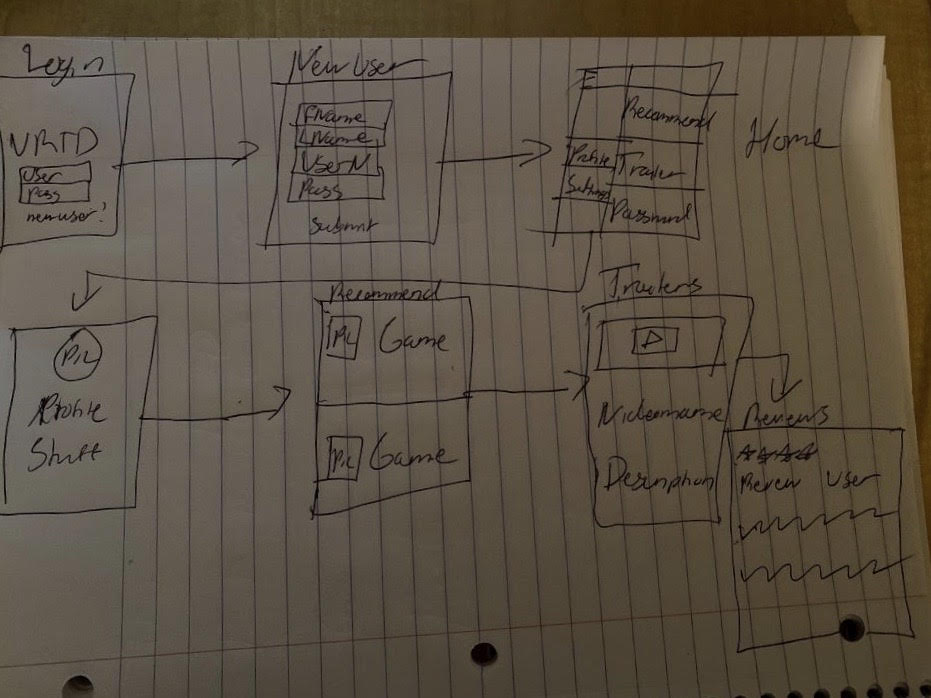 Login
User
Pass
new user?
New User
FName
LName
UserN
Pass
Submit
Home
E
Recommend
Profile
Trailer
Settings
Pic
Profile
Stuff
Recommend
Pic Game
Pic Game
Trailers
Videoname
Description
Reviews
Review User